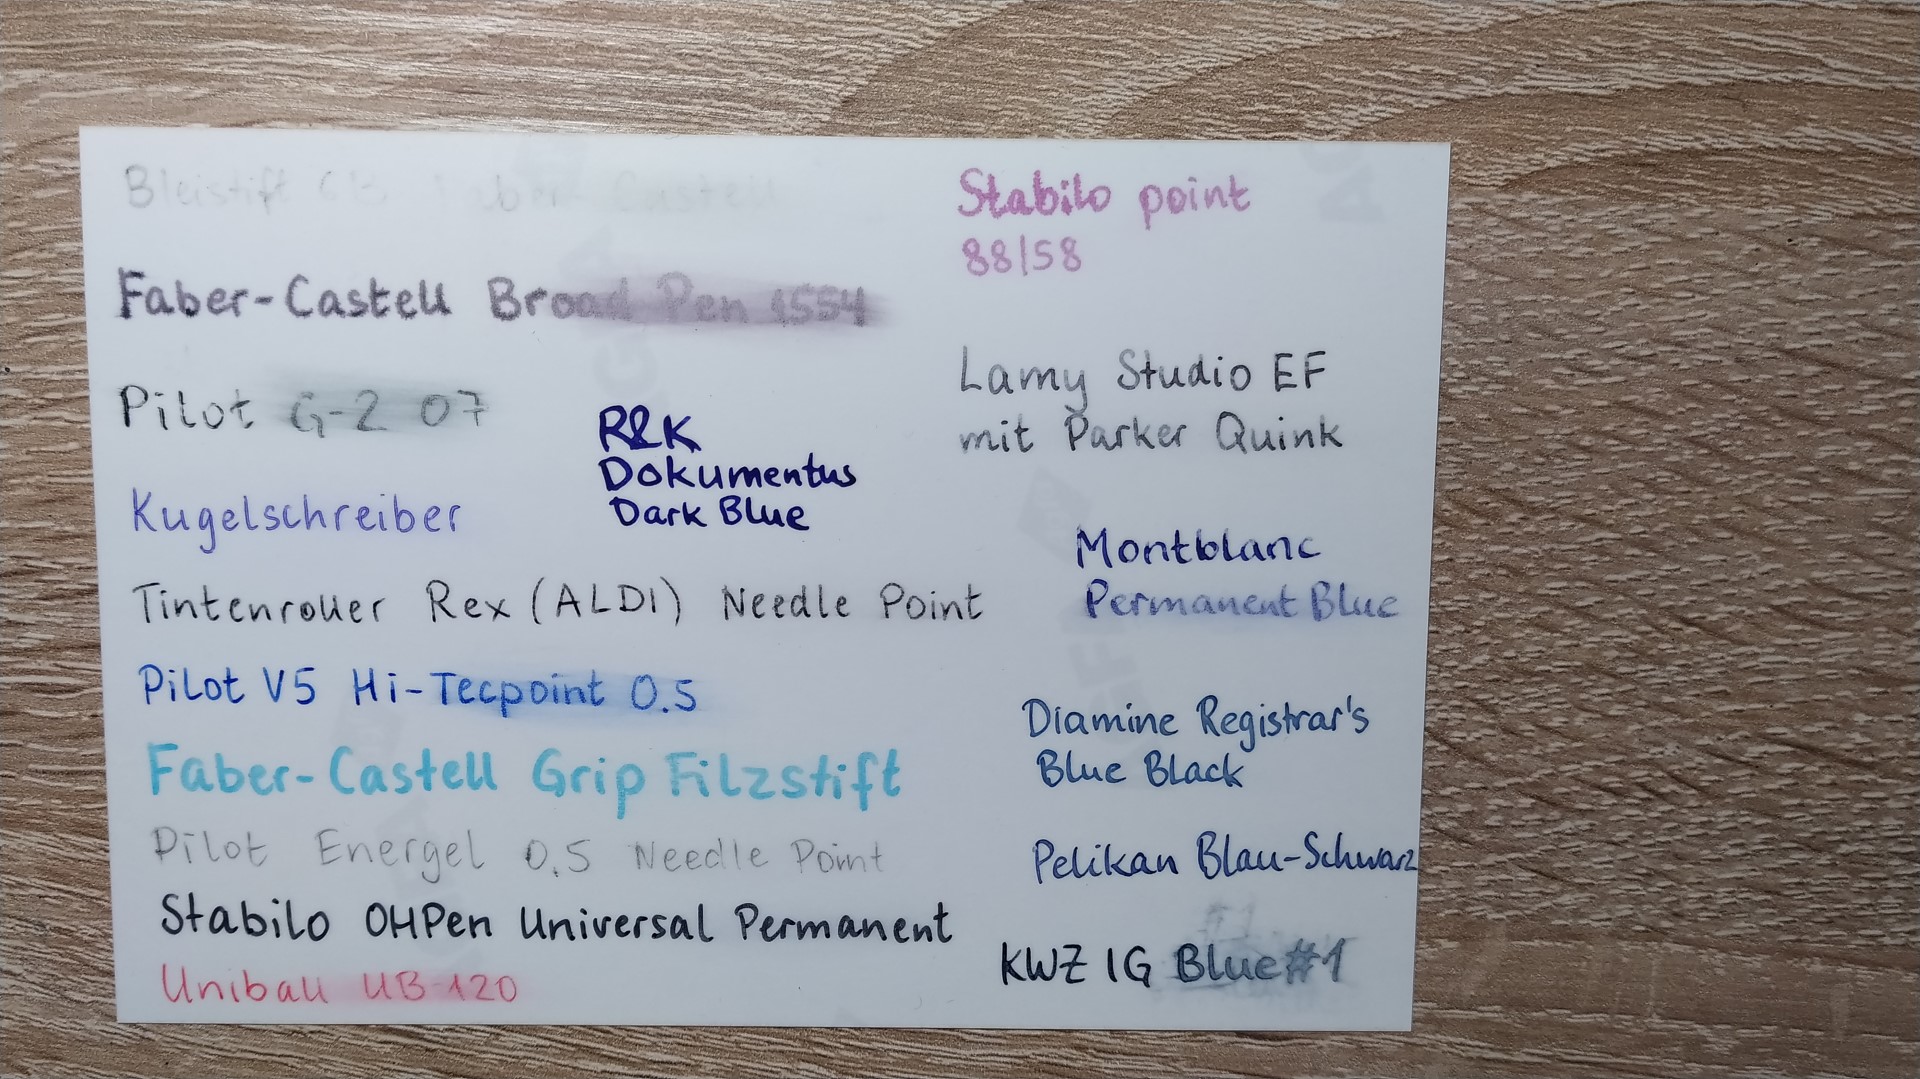 Bleistift 6B Faber-Castell
Faber-Castell Broad Pen 1554
Pilot G-2 07
Kugelschreiber
R&K
Dokumentus
Dark Blue
Tintenroller Rex (ALDI) Needle Point
Pilot V5 Hi-Tecpoint 0.5
Faber-Castell Grip Filzstift
Pilot Energel 0.5 Needle Point
Stabilo OHPen Universal Permanent
Uniball UB-120
Stabilo point
88/58
Lamy Studio EF
mit Parker Quink
Montblanc
Permanent Blue
Diamine Registrar's
Blue Black
Pelikan Blau-Schwarz
#1
KWZ IG Blue #1